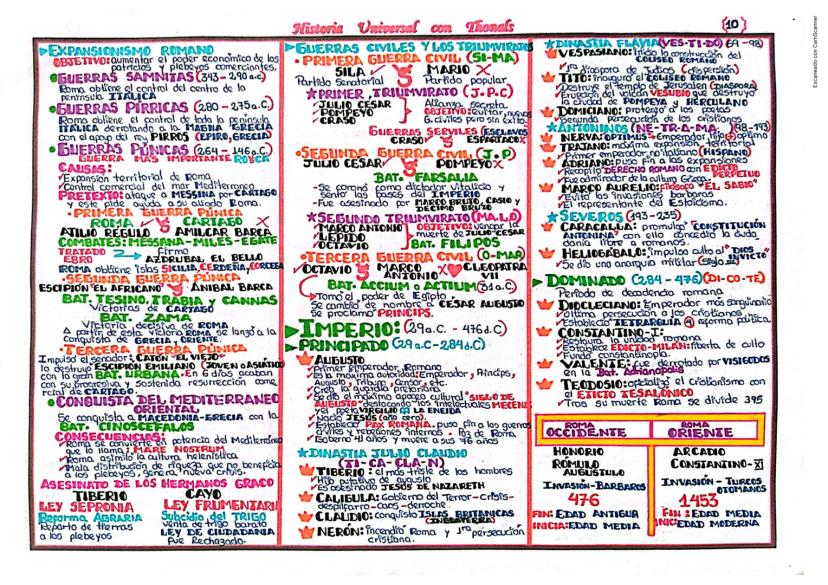 Historia Universal con Thonals
10
Escaneado con CamScanner
EXPANSIONISMO ROMANO
OBJETIVO: aumentar el poder económico de los
patricios y plebeyos comerciantes.
GUERRAS SAMNITAS (343 - 290 a.c)
Roma obtiene el control del centro de la
península ITÁLICA
GUERRAS PÍRRICAS (280 - 275 a.C)
Roma obtiene el control de toda la península
ITÁLICA derrotando a la MAGNA GRECIA
con el apoyo del rey PIRRO (EPIRO, GRECIA)
GUERRAS PÚNICAS (264 - 146 a.C)
GUERRA MAS IMPORTANTE
CAUSAS:
Expansión territorial de Roma
Control comercial del mar Mediterráneo
PRETEXTO: ataque a MESSINA por CARTAGO
y este pide ayuda a su aliado Roma.
PRIMERA GUERRA PÚNICA
ROMA CARTAGO X
ATILIO REGULO AMILCAR BARCA
COMBATES: MESSANA - MILES - EGATE
TRATADO EBRO firmo
AZDRUBAL EL BELLO
ROMA obtiene islas SICILIA, CERDEÑA, CORCEGA
SEGUNDA GUERRA PÚNICA
ESCIPION EL AFRICANO ANIBAL BARCA
BAT. TESINO, TRABIA y CANNAS
Victorias de CARTAGO
BAT. ZAMA
Victoria decisiva de ROMA
A partir de esta victoria Roma se lanzó a la
conquista de GRECIA, ORIENTE.
TERCERA GUERRA PÚNICA
Impulso el senador: CATÓN "EL VIEJO"
lo destruyo ESCIPION EMILIANO (JOVEN o ASIÁTICO)
con la gran BAT. URBANA - En 6 dias acaban
con su progresiva y sostenida resurrección come
rcial de CARTAGO.
CONQUISTA DEL MEDITERRANEO
ORIENTAL
Se conquista a MACEDONIA-GRECIA con la
BAT. CINOSCEFALOS
CONSECUENCIAS:
Roma se convierte en potencia del Mediterráneo
que lo llama: MARE NOSTRUM
Roma asimilo la cultura helenistica
Mala distribución de riqueza que no beneficio
a los plebeyos, genera nueva crisis.
ASESINATO DE LOS HERMANOS GRACO
TIBERIO CAYO
LEY SEPRONIA LEY FRUMENTARIA
Reforma AGRARIA Subcidio del TRIGO
Reparto de tierras venta de trigo barato
a los plebeyos LEY DE CIUDADANIA
Fue Rechazado.
GUERRAS CIVILES Y LOS TRIUMVIRATOS
PRIMERA GUERRA CIVIL (SI-MA)
SILA MARIO X
Partido senatorial Partido popular
PRIMER TRIUMVIRATO (J.P.C)
JULIO CESAR
POMPEYO
CRASO
Alianza secreta
OBJETIVO: evitar nuevas
G. civiles pero sin éxito.
GUERRAS SERVILES (ESCLAVOS
CRASO ESPARTACO X
SEGUNDA GUERRA CIVIL (J.P)
JULIO CESAR POMPEYO X
BAT. FARSALIA
- Se coronó como dictador Vitalicio y
sento las bases del IMPERIO
- Fue asesinado por MARCO BRUTO, CASIO y
DECIMO BRUTO
SEGUNDO TRIUMVIRATO (MA.L.O)
MARCO ANTONIO
LEPIDO
OCTAVIO
OBJETIVO: vengar la
muerte de JULIO CESAR
BAT. FILIPOS
TERCERA GUERRA CIVIL (O-MAR)
OCTAVIO MARCO ANTONIO X CLEOPATRA VII
BAT. ACCIUM o ACTIUM (31 a.C)
Tomo el poder de Egipto.
Se cambio de nombre a CESAR AUGUSTO
Se proclamo PRINCIPS.
IMPERIO: (29 a.C. - 476 d.C)
PRINCIPADO (29 a.C - 284 d.C)
AUGUSTO
Primer emperador Romano
Es la maxima autoridad: Emperador, Princips,
Augusto, Tribuno, Censor, etc.
Creo la guardia pretoriana
Se dio el máximo apogeo cultural "SIGLO DE
AUGUSTO" - destacando los intelectuales MECENAS
y el poeta VIRGILIO LA ENEIDA
Nació JESÚS (año cero).
Estableció PAX ROMANA: puso fin a las guerras
civiles y rebeliones internas - paz de Roma
Goberno 41 años y muere a sus 76 años
DINASTIA JULIO CLAUDIO
(TI-CA-CLA-N)
TIBERIO: el más triste de los hombres
Hijo putativo de augusto
Es asesinado JESÚS DE NAZARETH
CALIGULA: Gobierno del Terror - Crisis -
despilfarro - caos - derroche.
CLAUDIO: conquisto ISLAS BRITANICAS
(INGLATERRA)
NERÓN: Incendió Roma y 1ra persecución
cristiana.
DINASTIA FLAVIA (VES-TI-DO) (69 - 96)
VESPASIANO: Inicio la construcción del
COLISEO ROMANO
1ra Diaspora de Judios (dispersión)
TITO: Inauguro el COLISEO ROMANO
Destruye el templo de Jerusalen (DIASPORA)
Erupción del volcán VESUBIO que destruyo
la ciudad de POMPEYA y HERCULANO
DOMICIANO: protegio a los poetas
Segunda persecución de los cristianos
ANTONINOS (NE-TRA-MA)
TRAJANO: máxima expansión territorial
Primer emperador no italiano (HISPANO)
ADRIANO: puso fin a las expansiones
Recopilo DERECHO ROMANO con EDICTO
PERPETUO
Fue admirador de la cultura Griega.
MARCO AURELIO: filosofo "EL SABIO"
Evito las invasiones barbaras
El representante del Estoicismo.
SEVEROS (193-235)
CARACALLA: promulgo "CONSTITUCIÓN
ANTONINA" con ello concedio la ciuda
dania libre a romanos.
HELIOGÁBALO: impulso culto al "DIOS
INVICTO"
Se dio una anarquia militar (Siglo III)
DOMINADO (284 - 476) (DI-CO-TE)
Periodo de decadencia romana
DIOCLECIANO: Emperador más sanguinario
Ultima persecución a los cristianos
Estableció TETRARQUIA reforma politica.
CONSTANTINO-I:
Restaura la unidad romana
Estableció EDICTO-MILÁN: libertad de culto
Fundo constantinopla.
VALENTE: fue derrotado por VISIGODOS
en la Bat. Adrianopolis
TEODOSIO: oficializó el Cristianismo con
el EDICTO TESALÓNICO
Tras su muerte Roma se divide 395
ROMA OCCIDENTE ROMA ORIENTE
HONORIO ARCADIO
ROMULO AUGUSTULO CONSTANTINO-XI
INVASIÓN-BARBAROS INVASIÓN - TURCOS OTOMANOS
476 1453
FIN: EDAD ANTIGUA FIN: EDAD MEDIA
INICIA: EDAD MEDIA INICIO: EDAD MODERNA